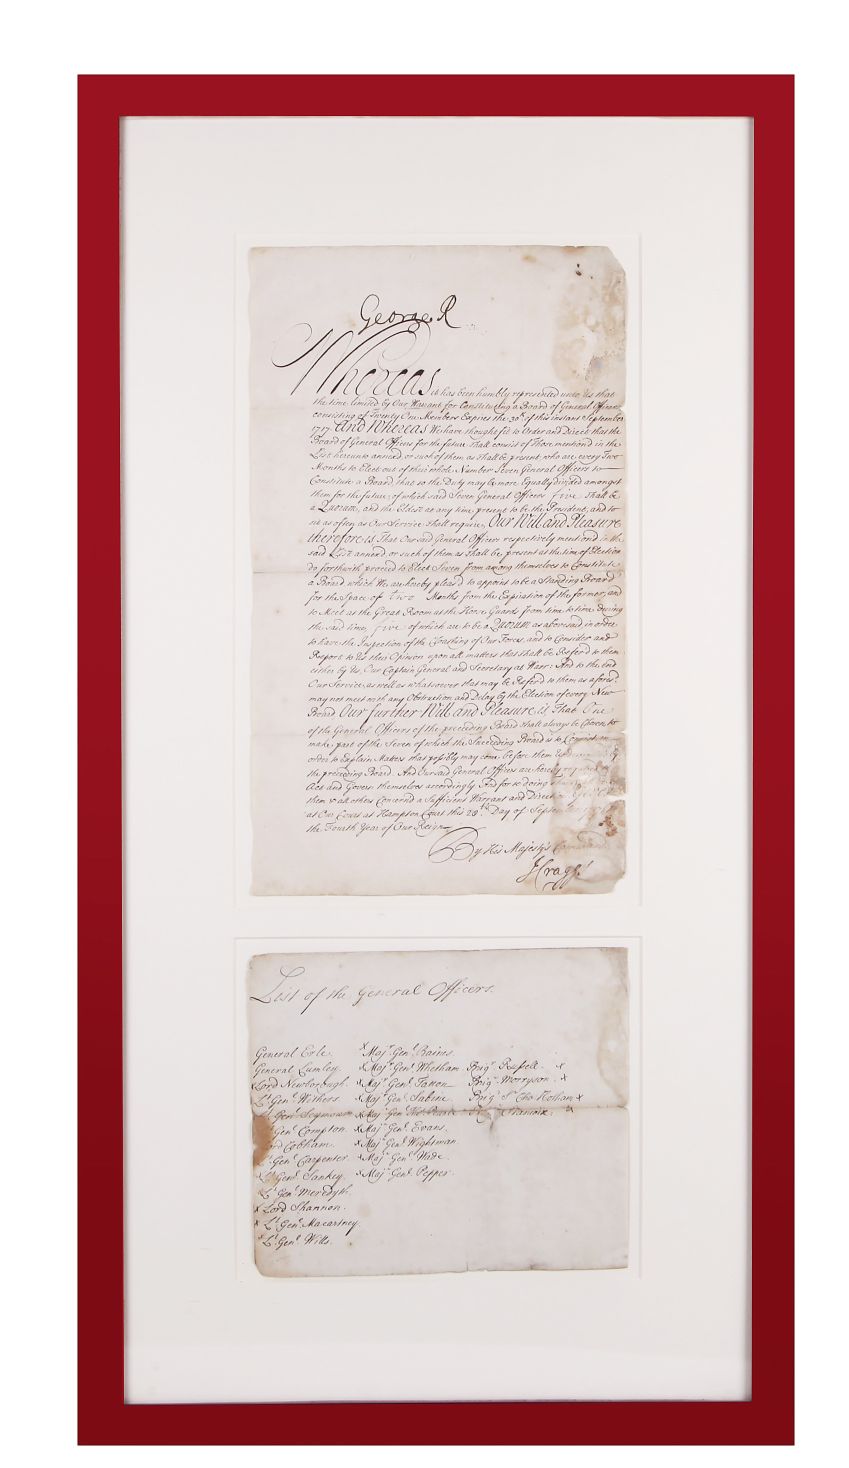 George R
Whereas it has been humbly represented unto Us that
the time limited by Our Warrant for Constituting a Board of General Officers
consisting of Twenty One Members Expires the 30th of this instant September
1717. And Whereas We have thought fit to Order and Direct that the
Board of General Officers for the future shall consist of Those mention'd in the
List hereunto annexd, or such of them as shall be present, who are every Two
Months to Elect out of their whole Number Seven General Officers to
Constitute a Board that so the Duty may be more Equally divided amongst
them for the future, of which said Seven General Officers five shall be
a Quorum, and the Eldest at any time present to be the President, and to
sit as often as Our Service shall require, Our Will and Pleasure
therefore is That Our said General Officers respectively mention'd in the
said List annexd, or such of them as shall be present at the time of Election
do forthwith proceed to Elect Seven from among themselves to Constitute
a Board which We are hereby pleas'd to appoint to be a Standing Board
for the Space of two Months from the Expiration of the former, and
to Meet at the Great Room at the Horse Guards from time to time during
the said time, five of which are to be a Quorum as aforesaid in order
to have the Inspection of the Cloathing of Our Forces, and to Consider and
Report to Us their Opinion upon all matters that shall be Refer'd to them
either by Us, Our Captain General and Secretary at Warr: And to the end
Our Service, as well as whatsoever that may be Refer'd to them as afores.d
may not meet with any Obstruction and Delay by the Election of every New
Board Our further Will and Pleasure is That One
of the General Officers of the preceding Board shall always be Chosen to
make part of the Seven of which the Succeeding Board is to Consist in
order to Explain Matters that possibly may come before them
the preceding Board. And Our said General Officers are hereby required to
Act and Govern themselves accordingly And for so doing this
them & all others Concern'd a Sufficient Warrant and Direction Given
at Our Court at Hampton Court this 20th Day of September 1717
the Fourth Year of Our Reign
By His Majesty's Command
J Craggs
List of the General Officers.
General Erle. x Maj.r Gen.l Raines.
General Lumley. x Maj.r Gen.l Whetham Brig.r Russell. x
Lord Newborough. x Maj.r Gen.l Tatton Brig.r Morryson. x
L.t Gen.l Withers. x Maj.r Gen.l Sabine. Brig.r S.r Cho. Hotham x
Gen.l Seymour x Maj.r Gen.l Tho. Pearce
Gen.l Compton. x Maj.r Gen.l Evans.
Lord Cobham. x Maj.r Gen.l Wightman.
L.t Gen.l Carpenter. x Maj.r Gen.l Wade.
x L.t Gen.l Sankey. x Maj.r Gen.l Pepper.
L.t Gen.l Meredyth.
x Lord Shannon.
x L.t Gen.l Macartney.
x L.t Gen.l Wills.